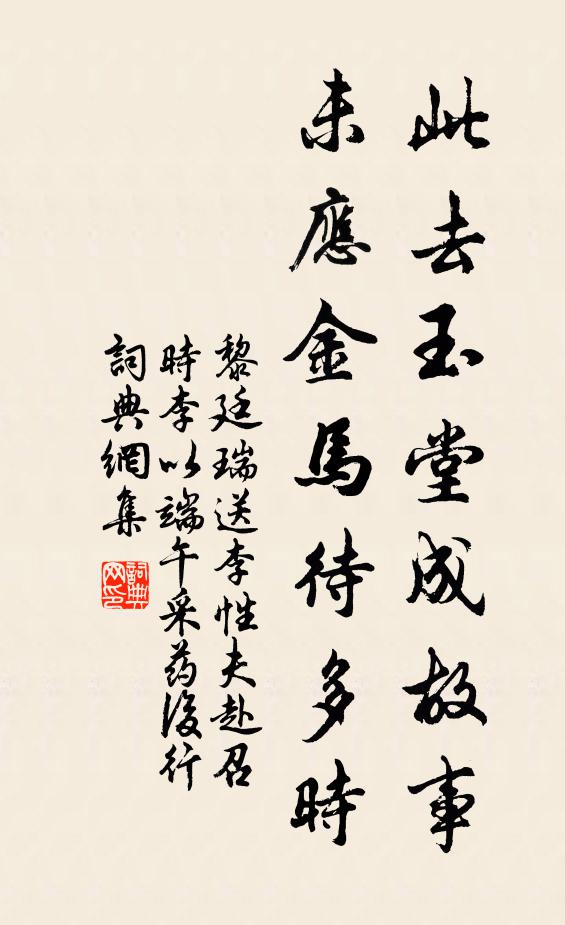 此去玉堂成故事
未應金馬待多時
黎廷瑞送李性夫赴召
時李以端午采药後行
詞典網集
詞典
网印